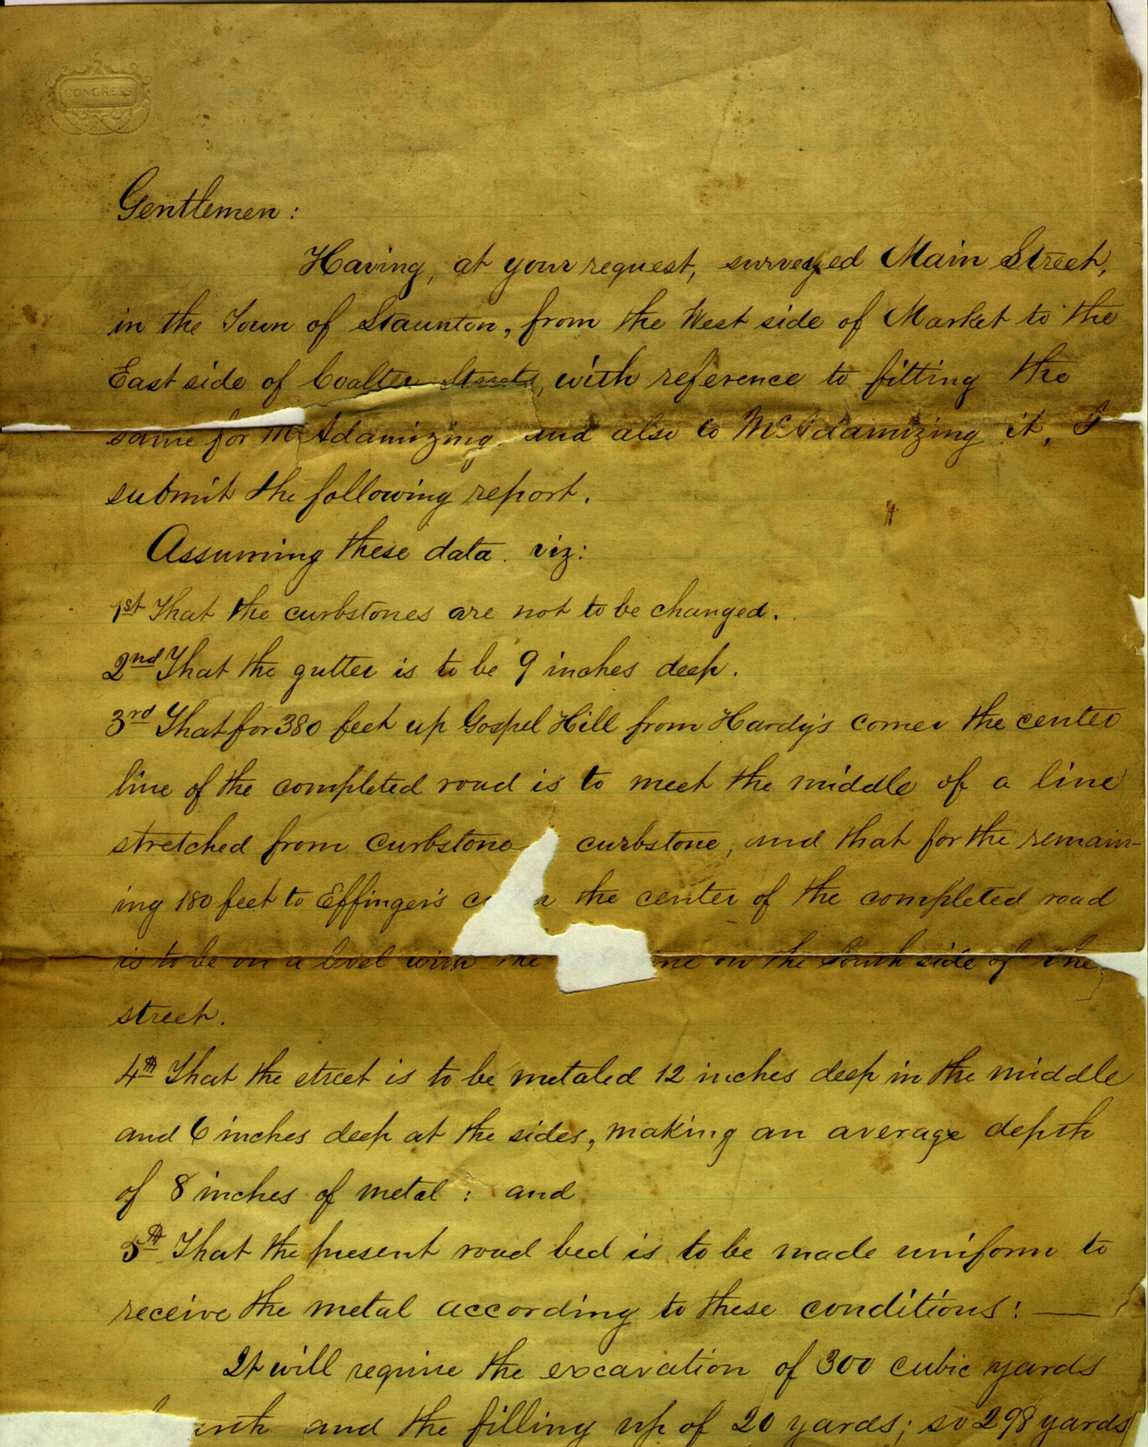 CONGRESS
Gentlemen:
Having, at your request, surveyed Main Street,
in the Town of Staunton, from the West side of Market to the
East side of Coalter Streets, with reference to fitting the
same for McAdamizing and also to McAdamizing it, I
submit the following report.
Assuming these data viz:
1st That the curbstones are not to be changed.
2nd That the gutter is to be 9 inches deep.
3rd That for 380 feet up Gospel Hill from Hardy's corner the center
line of the completed road is to meet the middle of a line
stretched from curbstone curbstone, and that for the remain-
ing 180 feet to Effinger's the center of the completed road
is to be on a level with the on the South side of the
street.
4th That the street is to be metaled 12 inches deep in the middle
and 6 inches deep at the sides, making an average depth
of 8 inches of metal: and
5th That the present road bed is to be made uniform to
receive the metal according to these conditions: —
It will require the excavation of 300 cubic yards
and the filling up of 20 yards; so 298 yards